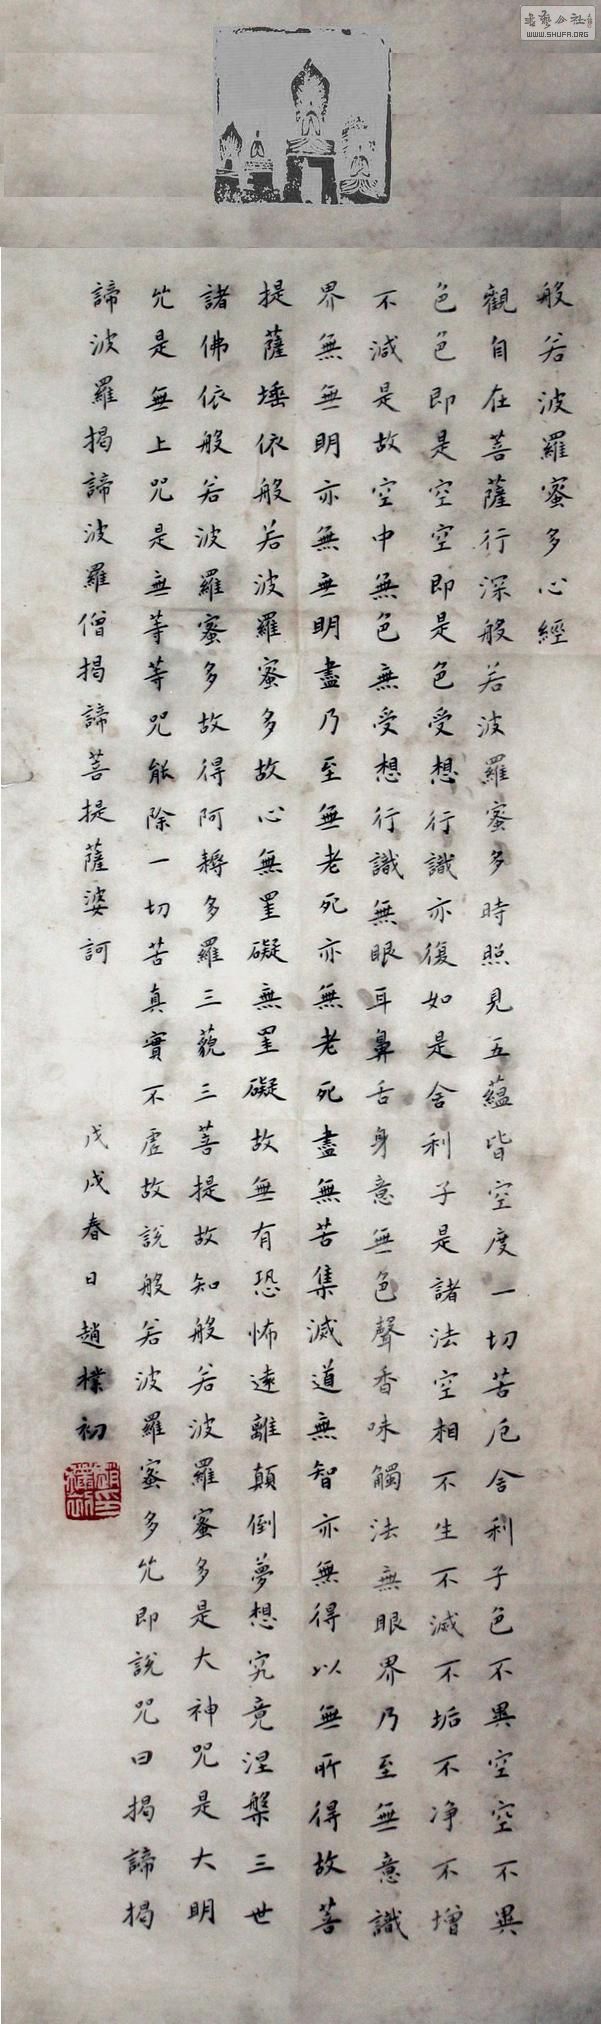 般若波羅蜜多心經
觀自在菩薩行深般若波羅蜜多時照見五蘊皆空度一切苦厄舍利子色不異空空不異
色色即是空空即是色受想行識亦復如是舍利子是諸法空相不生不滅不垢不净不增
不減是故空中無色無受想行識無眼耳鼻舌身意無色聲香味觸法無眼界乃至無意識
界無無明亦無無明盡乃至無老死亦無老死盡無苦集滅道無智亦無得以無所得故菩
提薩埵依般若波羅蜜多故心無罣礙無罣礙故無有恐怖遠離顛倒夢想究竟涅槃三世
諸佛依般若波羅蜜多故得阿耨多羅三藐三菩提故知般若波羅蜜多是大神咒是大明
咒是無上咒是無等等咒能除一切苦真實不虛故說般若波羅蜜多咒即說咒曰揭諦揭
諦波羅揭諦波羅僧揭諦菩提薩婆訶
戊戌春日趙樸初
趙樸初印
書藝公社
WWW.SHUFA.ORG